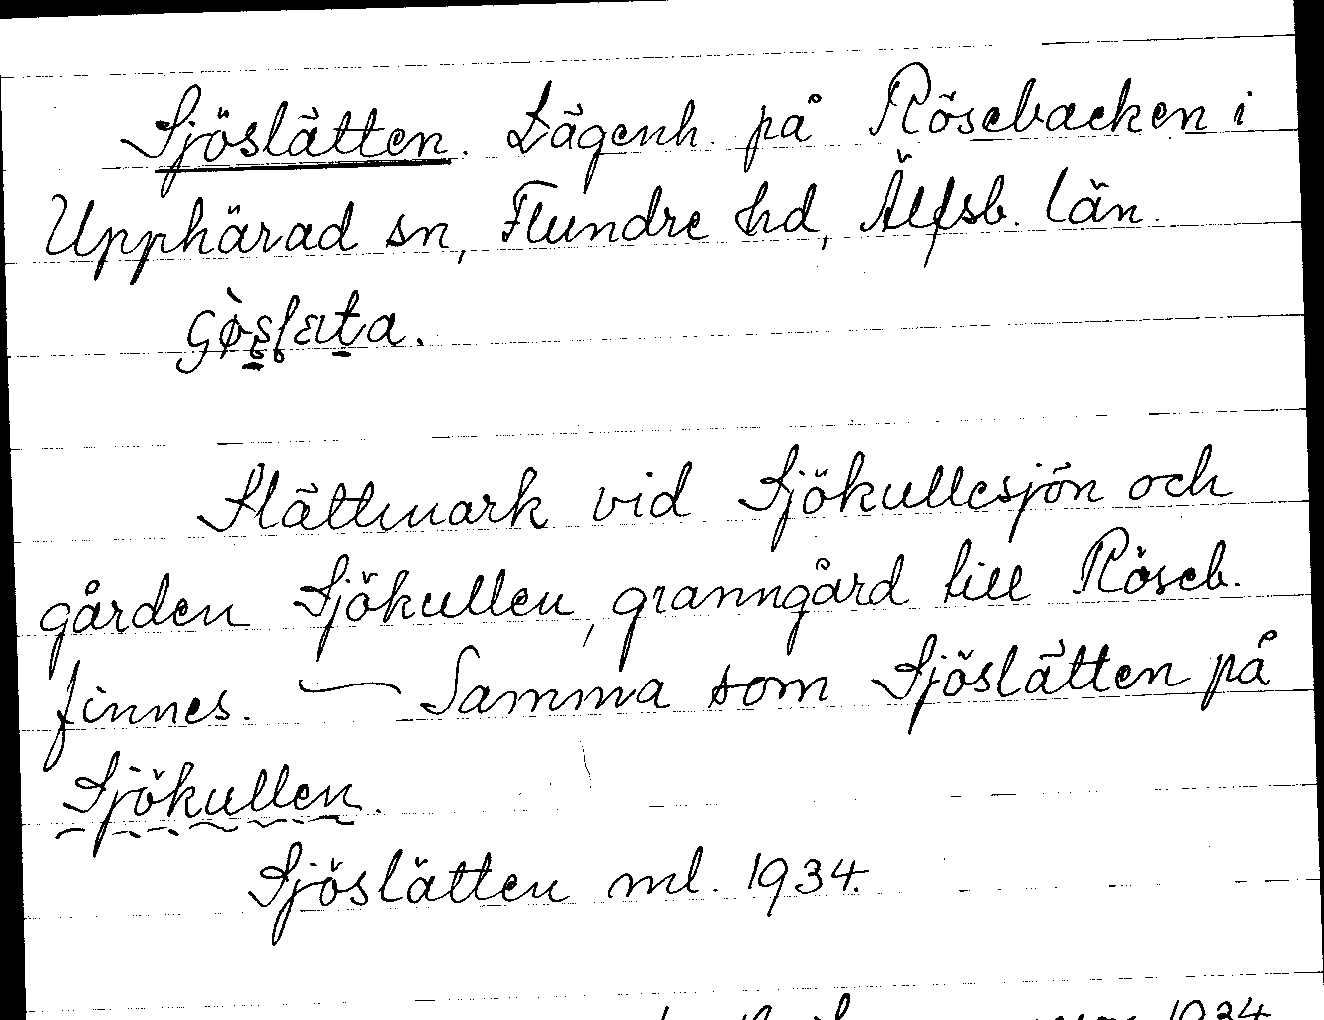 Sjöslätten. Lägenh. på Rösebacken i
Upphärad sn, Flundre hd, Älfsb. län.
Slättmark vid Sjökullesjön och
gården Sjökullen, granngård till Röseb.
finnes. — Samma som Sjöslätten på
Sjökullen.
Sjöslätten ml. 1934.
1934